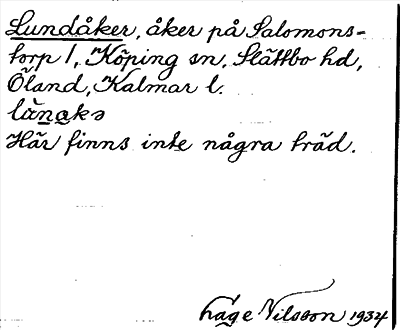 Lundåker, åker på Salomons-
torp 1, Köping sn, Slättbo hd,
Öland, Kalmar l.
Här finns inte några träd.
Håge Nilsson 1934